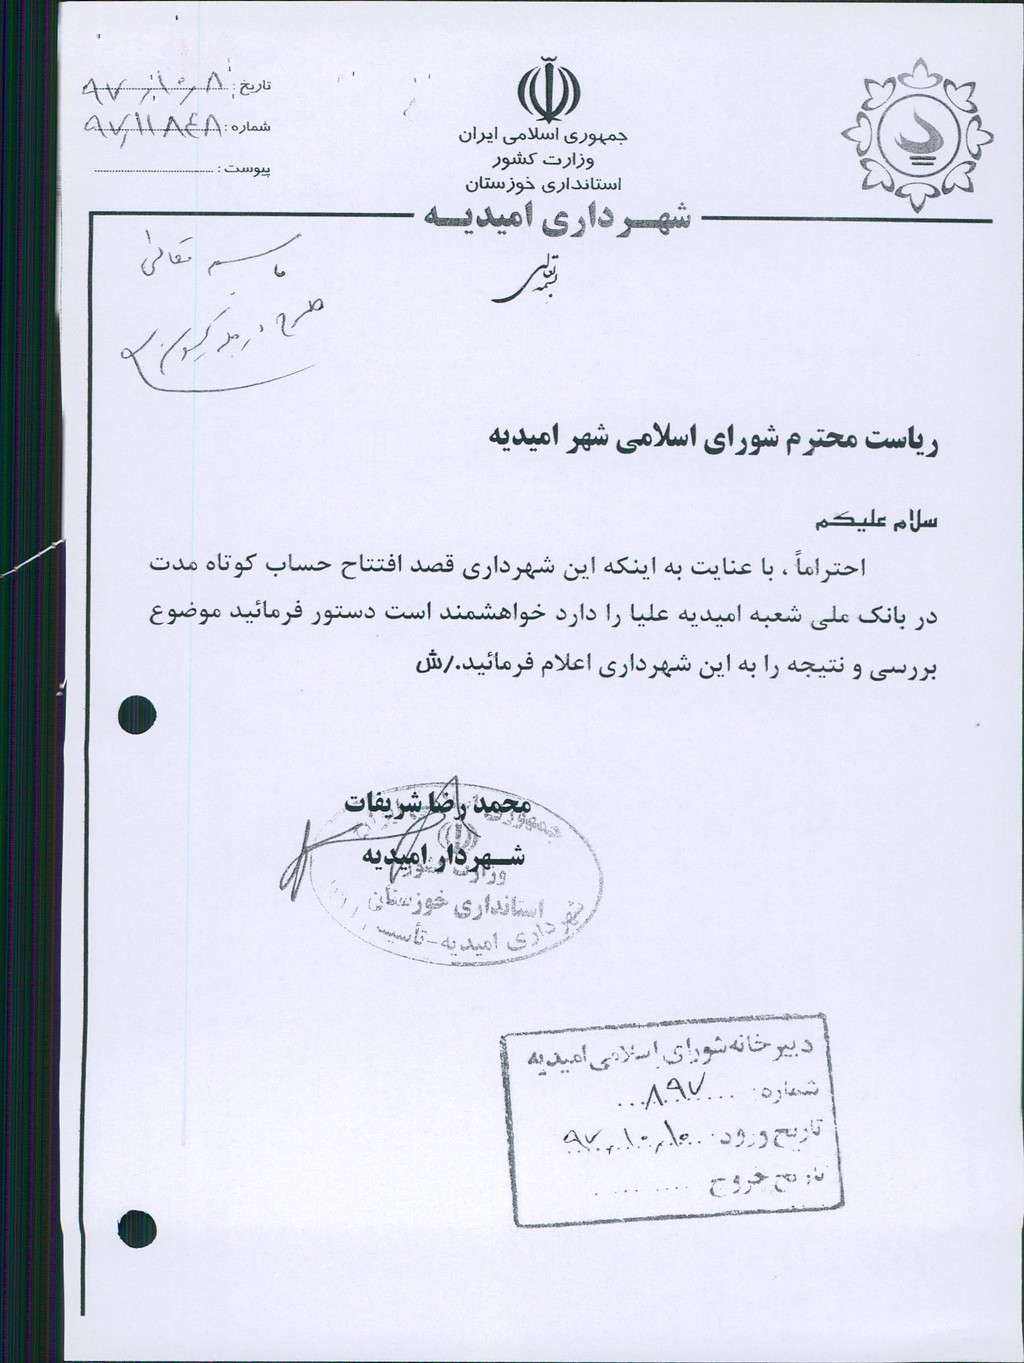 تاریخ: ۹۷/۱۰/۰۸
شماره: ۹۷/۱۱۸۴۸
پیوست:
جمهوری اسلامی ایران
وزارت کشور
استانداری خوزستان
شهرداری امیدیه
بسمه تعالی
طرح در جلسه کمیسیون
ریاست محترم شورای اسلامی شهر امیدیه
سلام علیکم
احتراماً ، با عنایت به اینکه این شهرداری قصد افتتاح حساب کوتاه مدت
در بانک ملی شعبه امیدیه علیا را دارد خواهشمند است دستور فرمائید موضوع
بررسی و نتیجه را به این شهرداری اعلام فرمائید./ش
محمد رضا شریفات
شهردار امیدیه
جمهوری اسلامی ایران
وزارت کشور
استانداری خوزستان
شهرداری امیدیه-تأسیس
دبیرخانه شورای اسلامی امیدیه
شماره: ۸۹۷
تاریخ ورود: ۹۷/۱۰/۱۰
تاریخ خروج